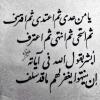 یا من عدی ثم اعتدی ثم اقترف
ثم انتهی ثم ارعوی ثم اعترف
ابشر بقول الله فی آیاته
ان ینتهوا یغفر لهم ما قد سلف